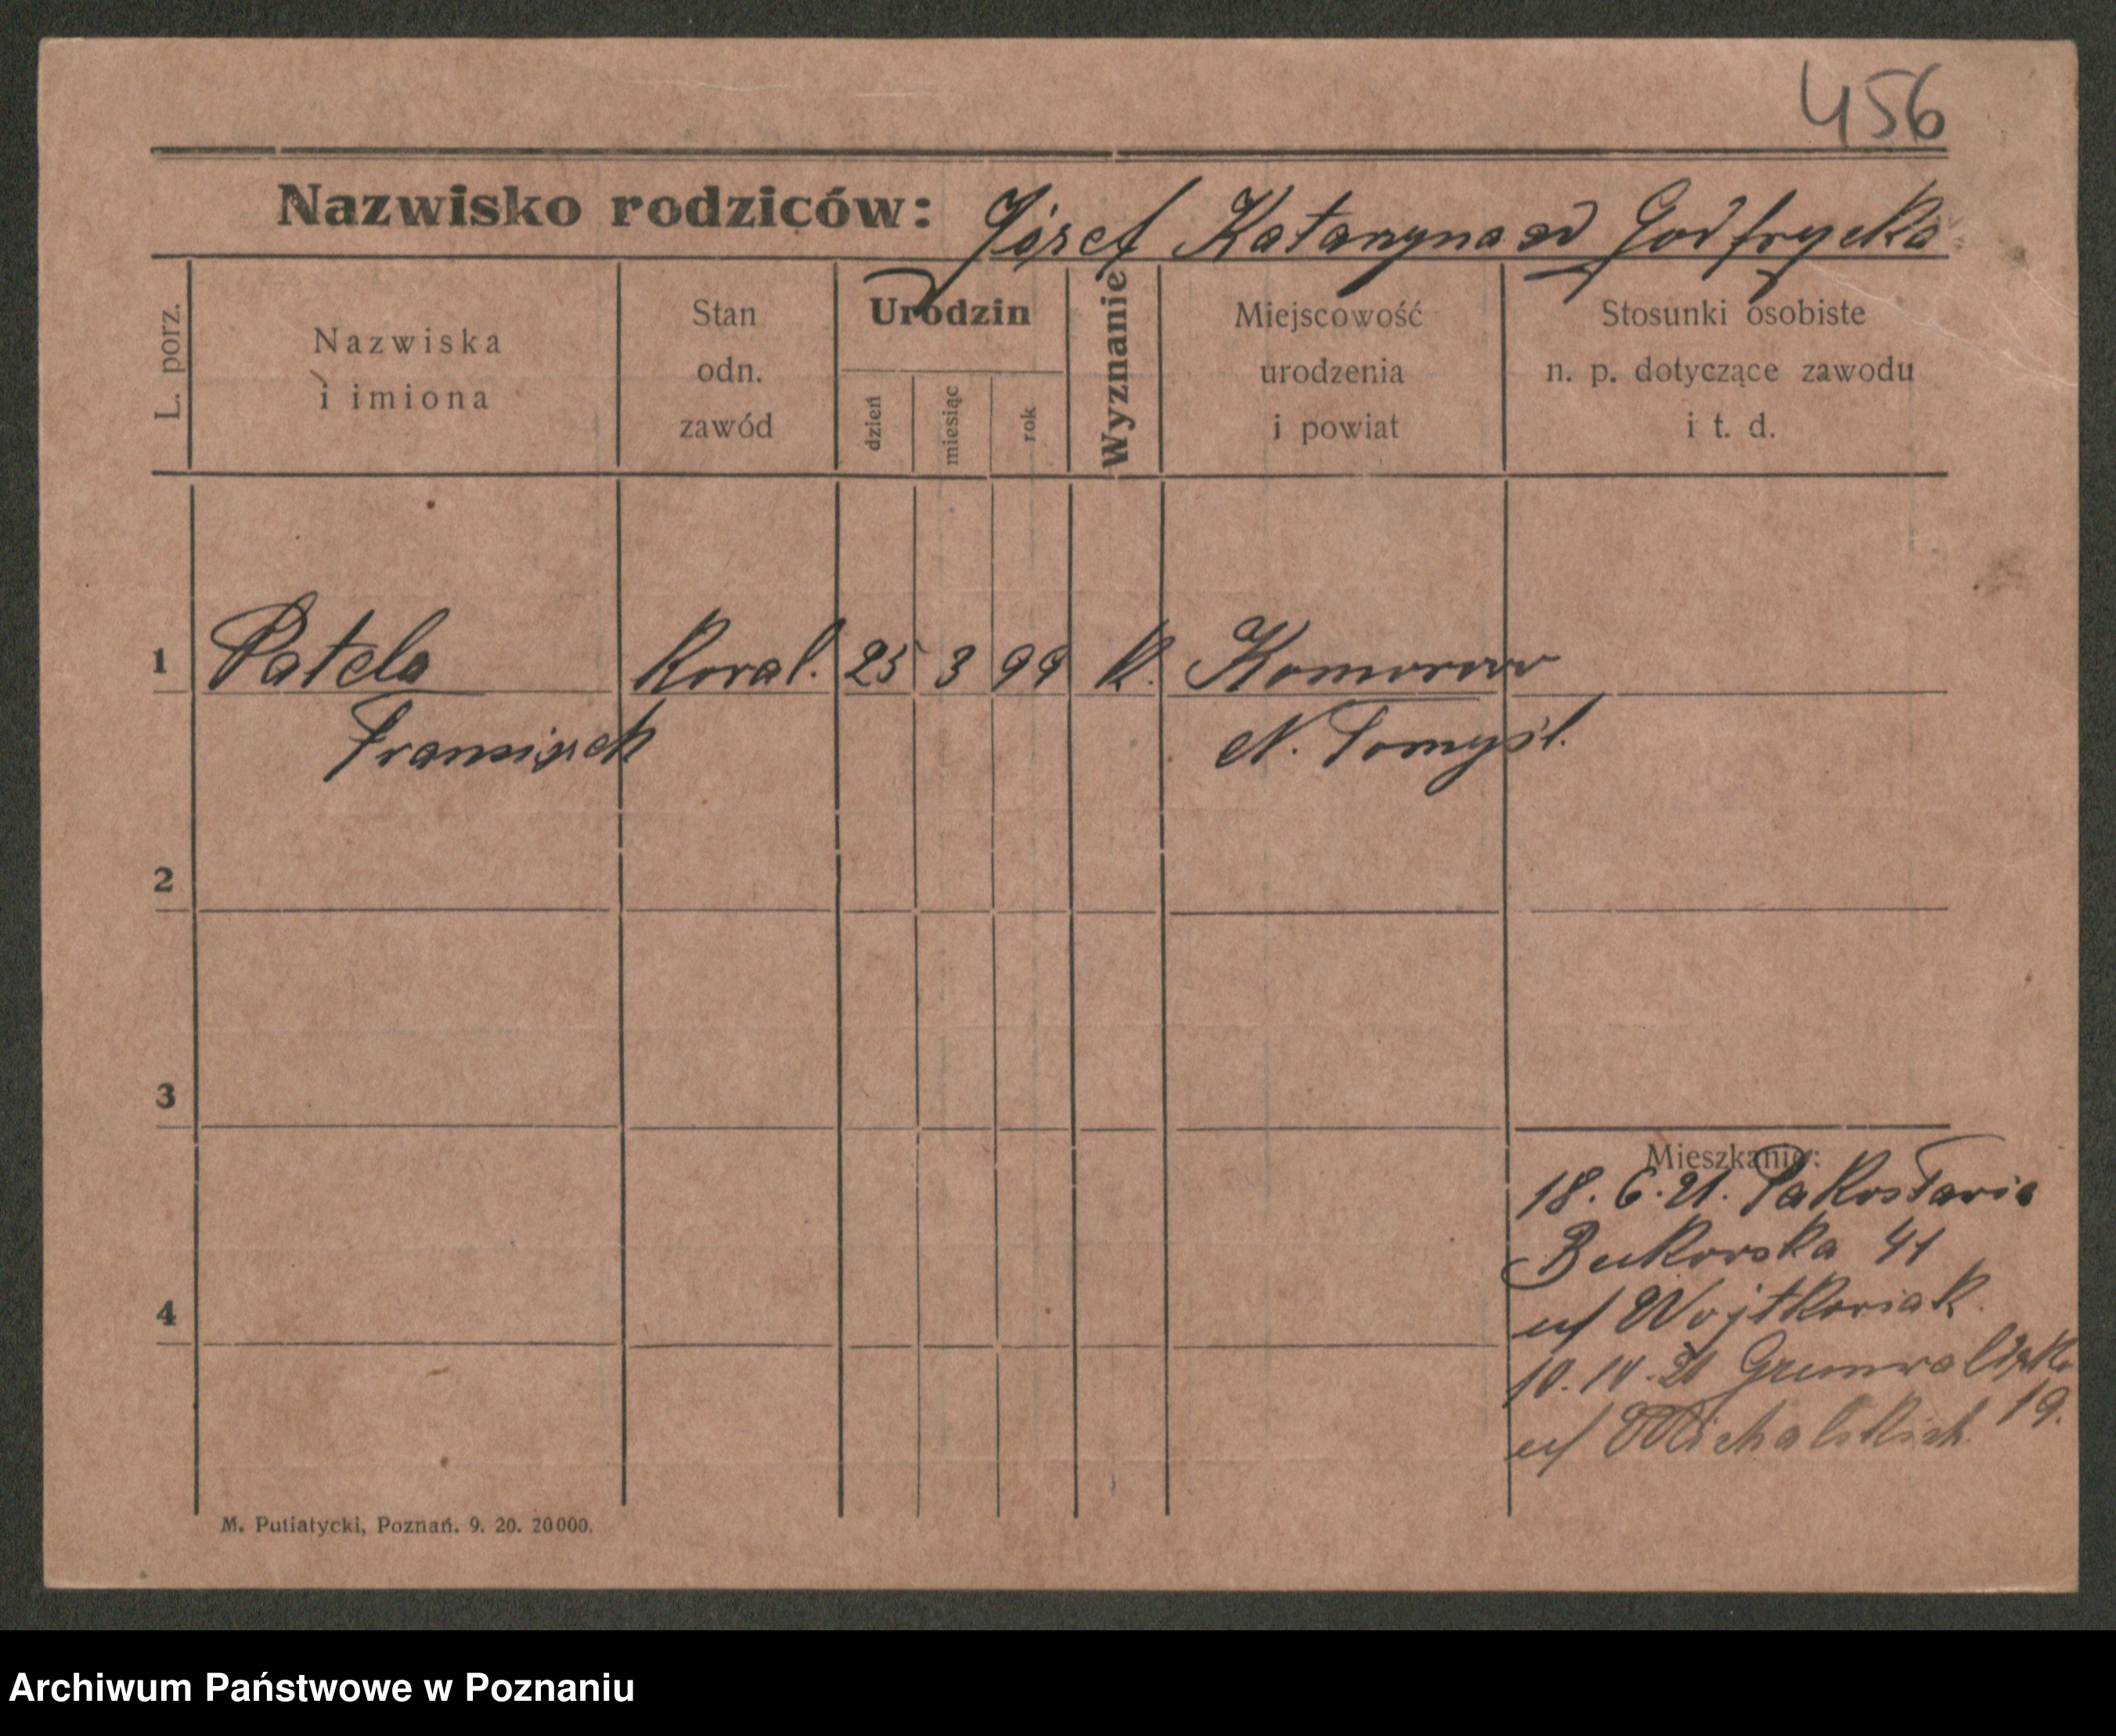 456
Nazwisko rodziców: Józef Katarzyna zd Godfrycka
L. porz.
Nazwiska
i imiona
Stan
odn.
zawód
Urodzin
dzień
miesiąc
rok
Wyznanie
Miejscowość
urodzenia
i powiat
Stosunki osobiste
n. p. dotyczące zawodu
i t. d.
1 Patela Koval. 25 3 99 K. Komorowo
Franciszek N. Tomyśl.
2
3
Mieszkanie:
18. 6. 21. Pakosława
Bukowska 41
u/ Wojtkowiak
4
10. 10. 21 Grunwaldzka
u/ Michalskich 19.
M. Putiatycki, Poznań. 9. 20. 20000.
Archiwum Państwowe w Poznaniu